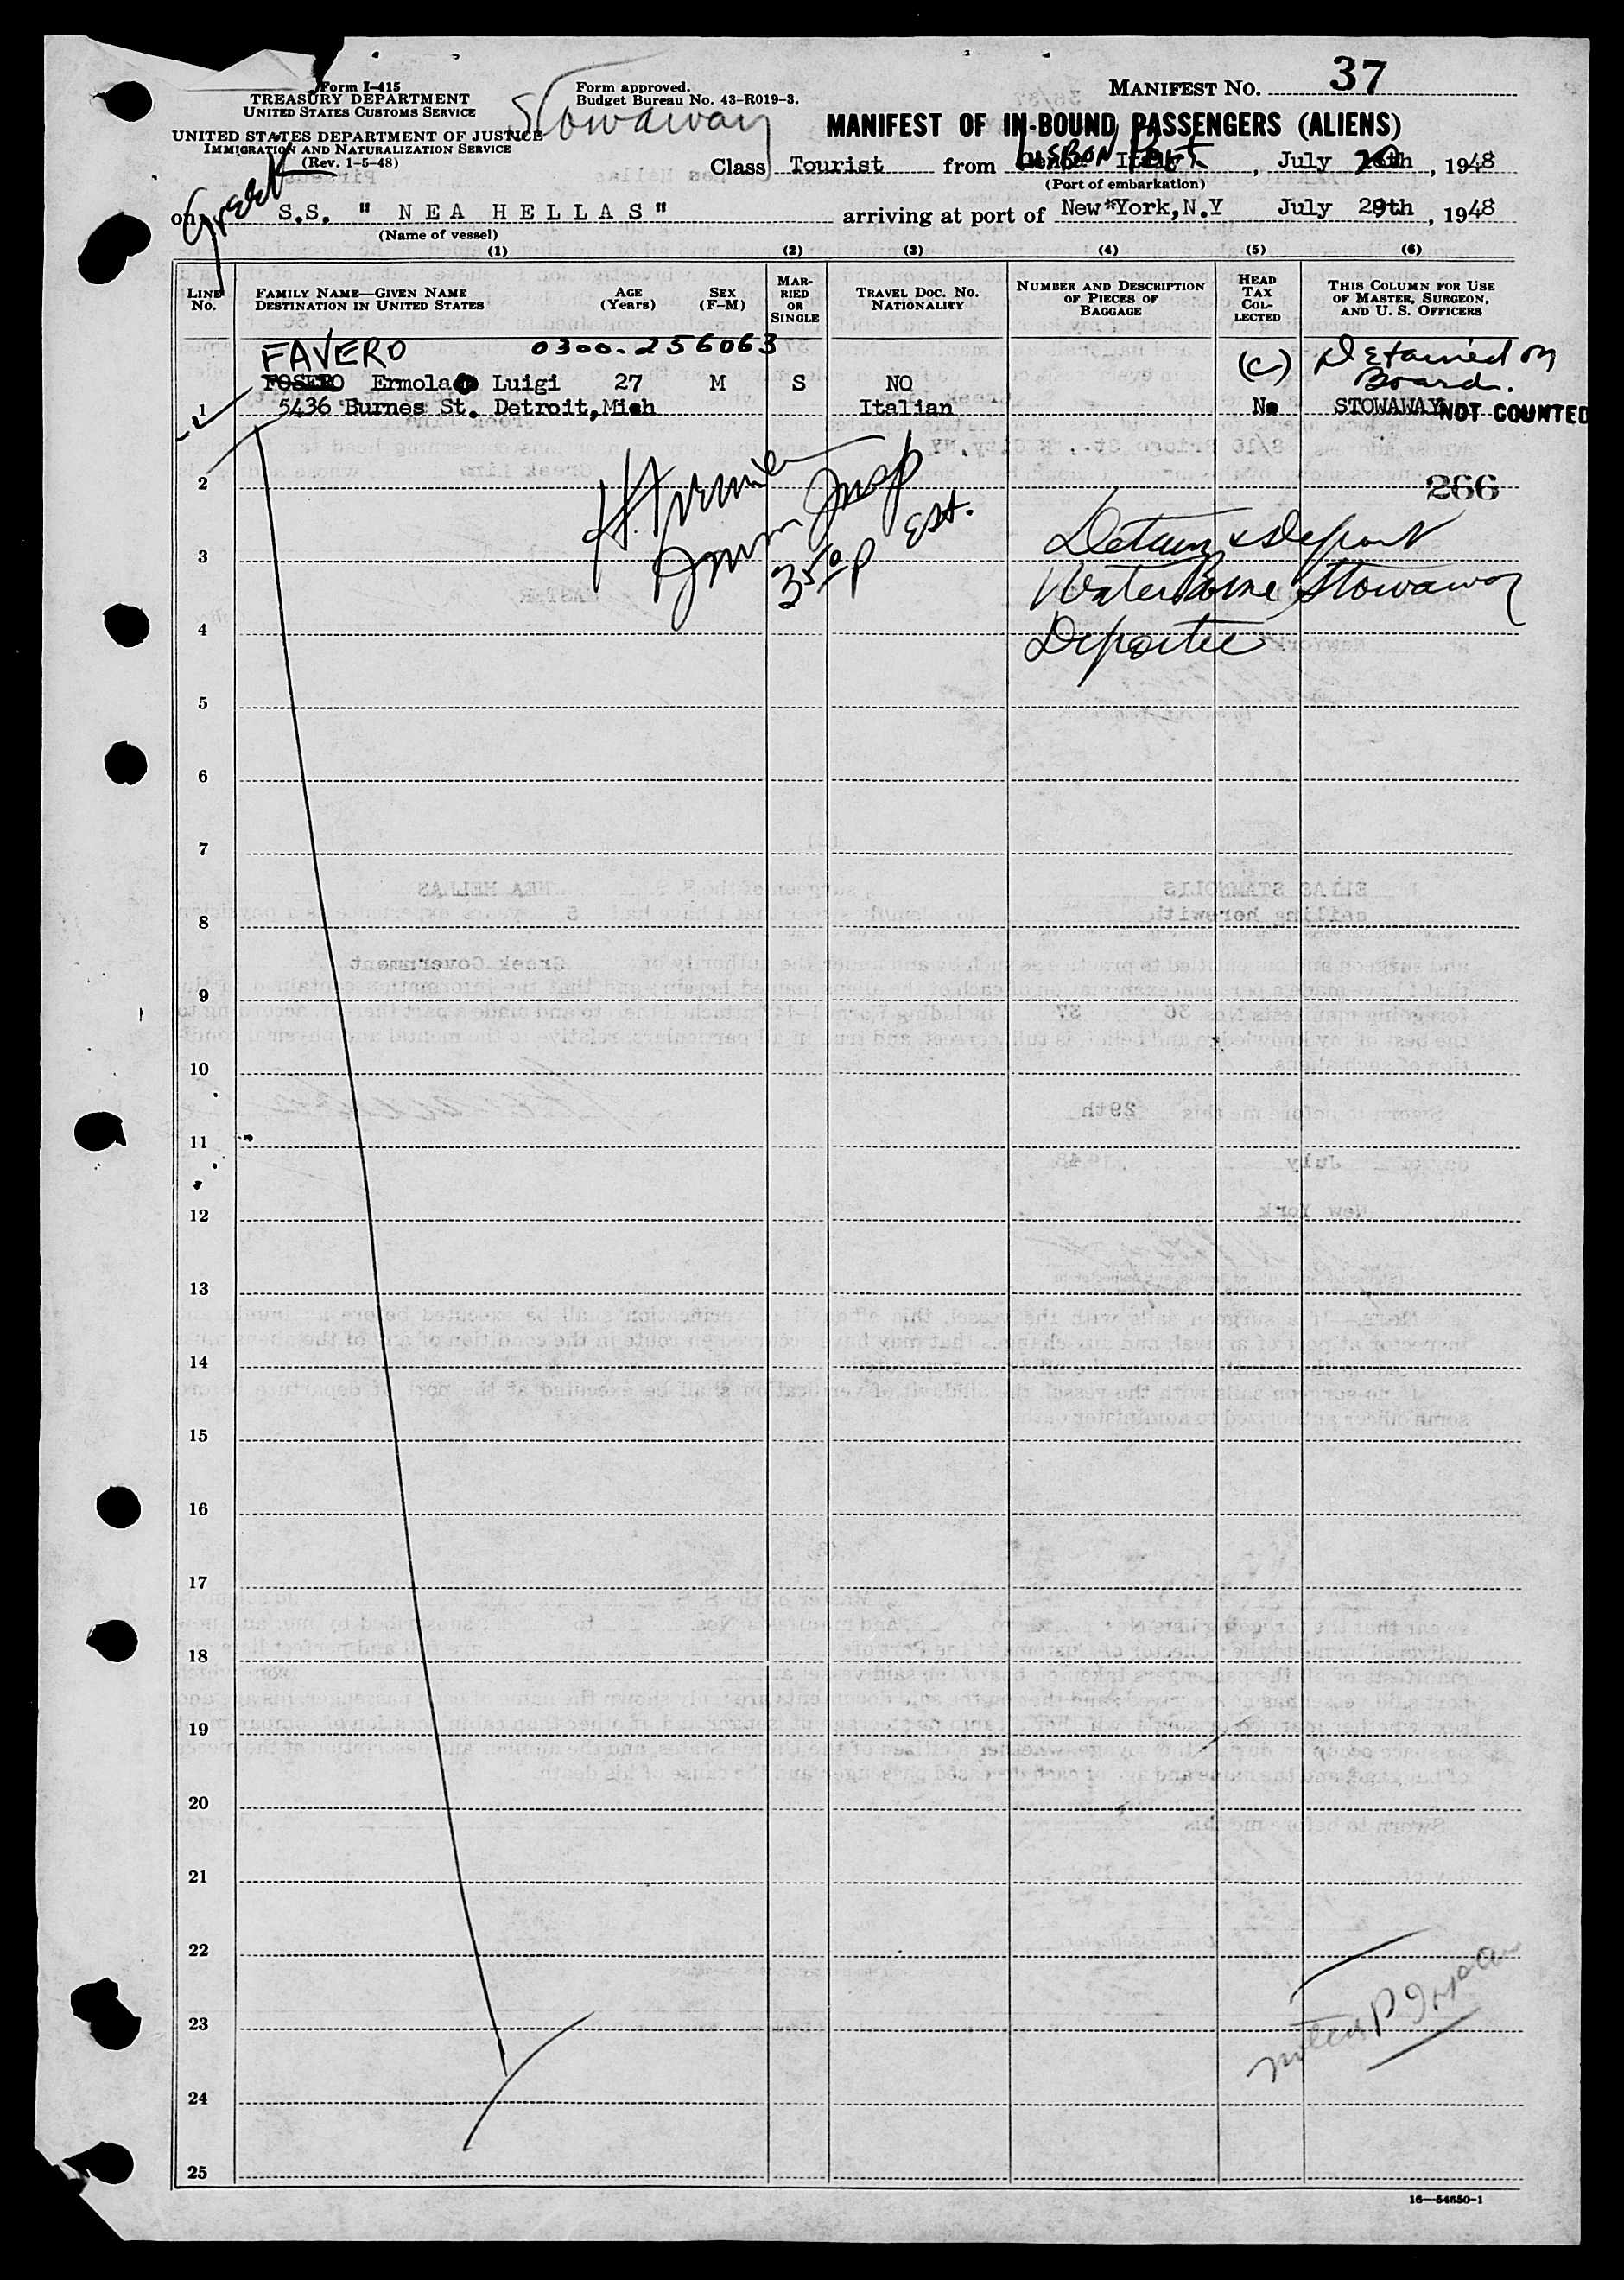 37
Form I-415
TREASURY DEPARTMENT
UNITED STATES CUSTOMS SERVICE
Form approved.
Budget Bureau No. 43-R019-3.
MANIFEST NO.
Stowaway
UNITED STATES DEPARTMENT OF JUSTICE
IMMIGRATION AND NATURALIZATION SERVICE
(Rev. 1-5-48)
MANIFEST OF IN-BOUND PASSENGERS (ALIENS)
Lisbon Port
Class Tourist from Genoa Italy, July 20th, 1948
(Port of embarkation)
Greek
on S.S. " NEA HELLAS" arriving at port of New York, N.Y July 29th, 1948
(Name of vessel)
(1) (2) (3) (4) (5) (6)
LINE NO.
FAMILY NAME—GIVEN NAME
DESTINATION IN UNITED STATES
AGE
(Years)
SEX
(F-M)
MAR-
RIED
OR
SINGLE
TRAVEL DOC. NO.
NATIONALITY
NUMBER AND DESCRIPTION
OF PIECES OF
BAGGAGE
HEAD
TAX
COL-
LECTED
THIS COLUMN FOR USE
OF MASTER, SURGEON,
AND U. S. OFFICERS
FAVERO 0300-256063 (C) Detained on
Board.
FOSERO Ermola Luigi 27 M S NO
1 5436 Burnes St. Detroit,Mich Italian No STOWAWAY NOT COUNTED
2 266
Imm Insp
350P Est.
3 Detain & Deport
Waterborne Stowaway
4 Deportee
5
6
7
8
9
10
11
12
13
14
15
16
17
18
19
20
21
22
23
24
25
16—54650-1